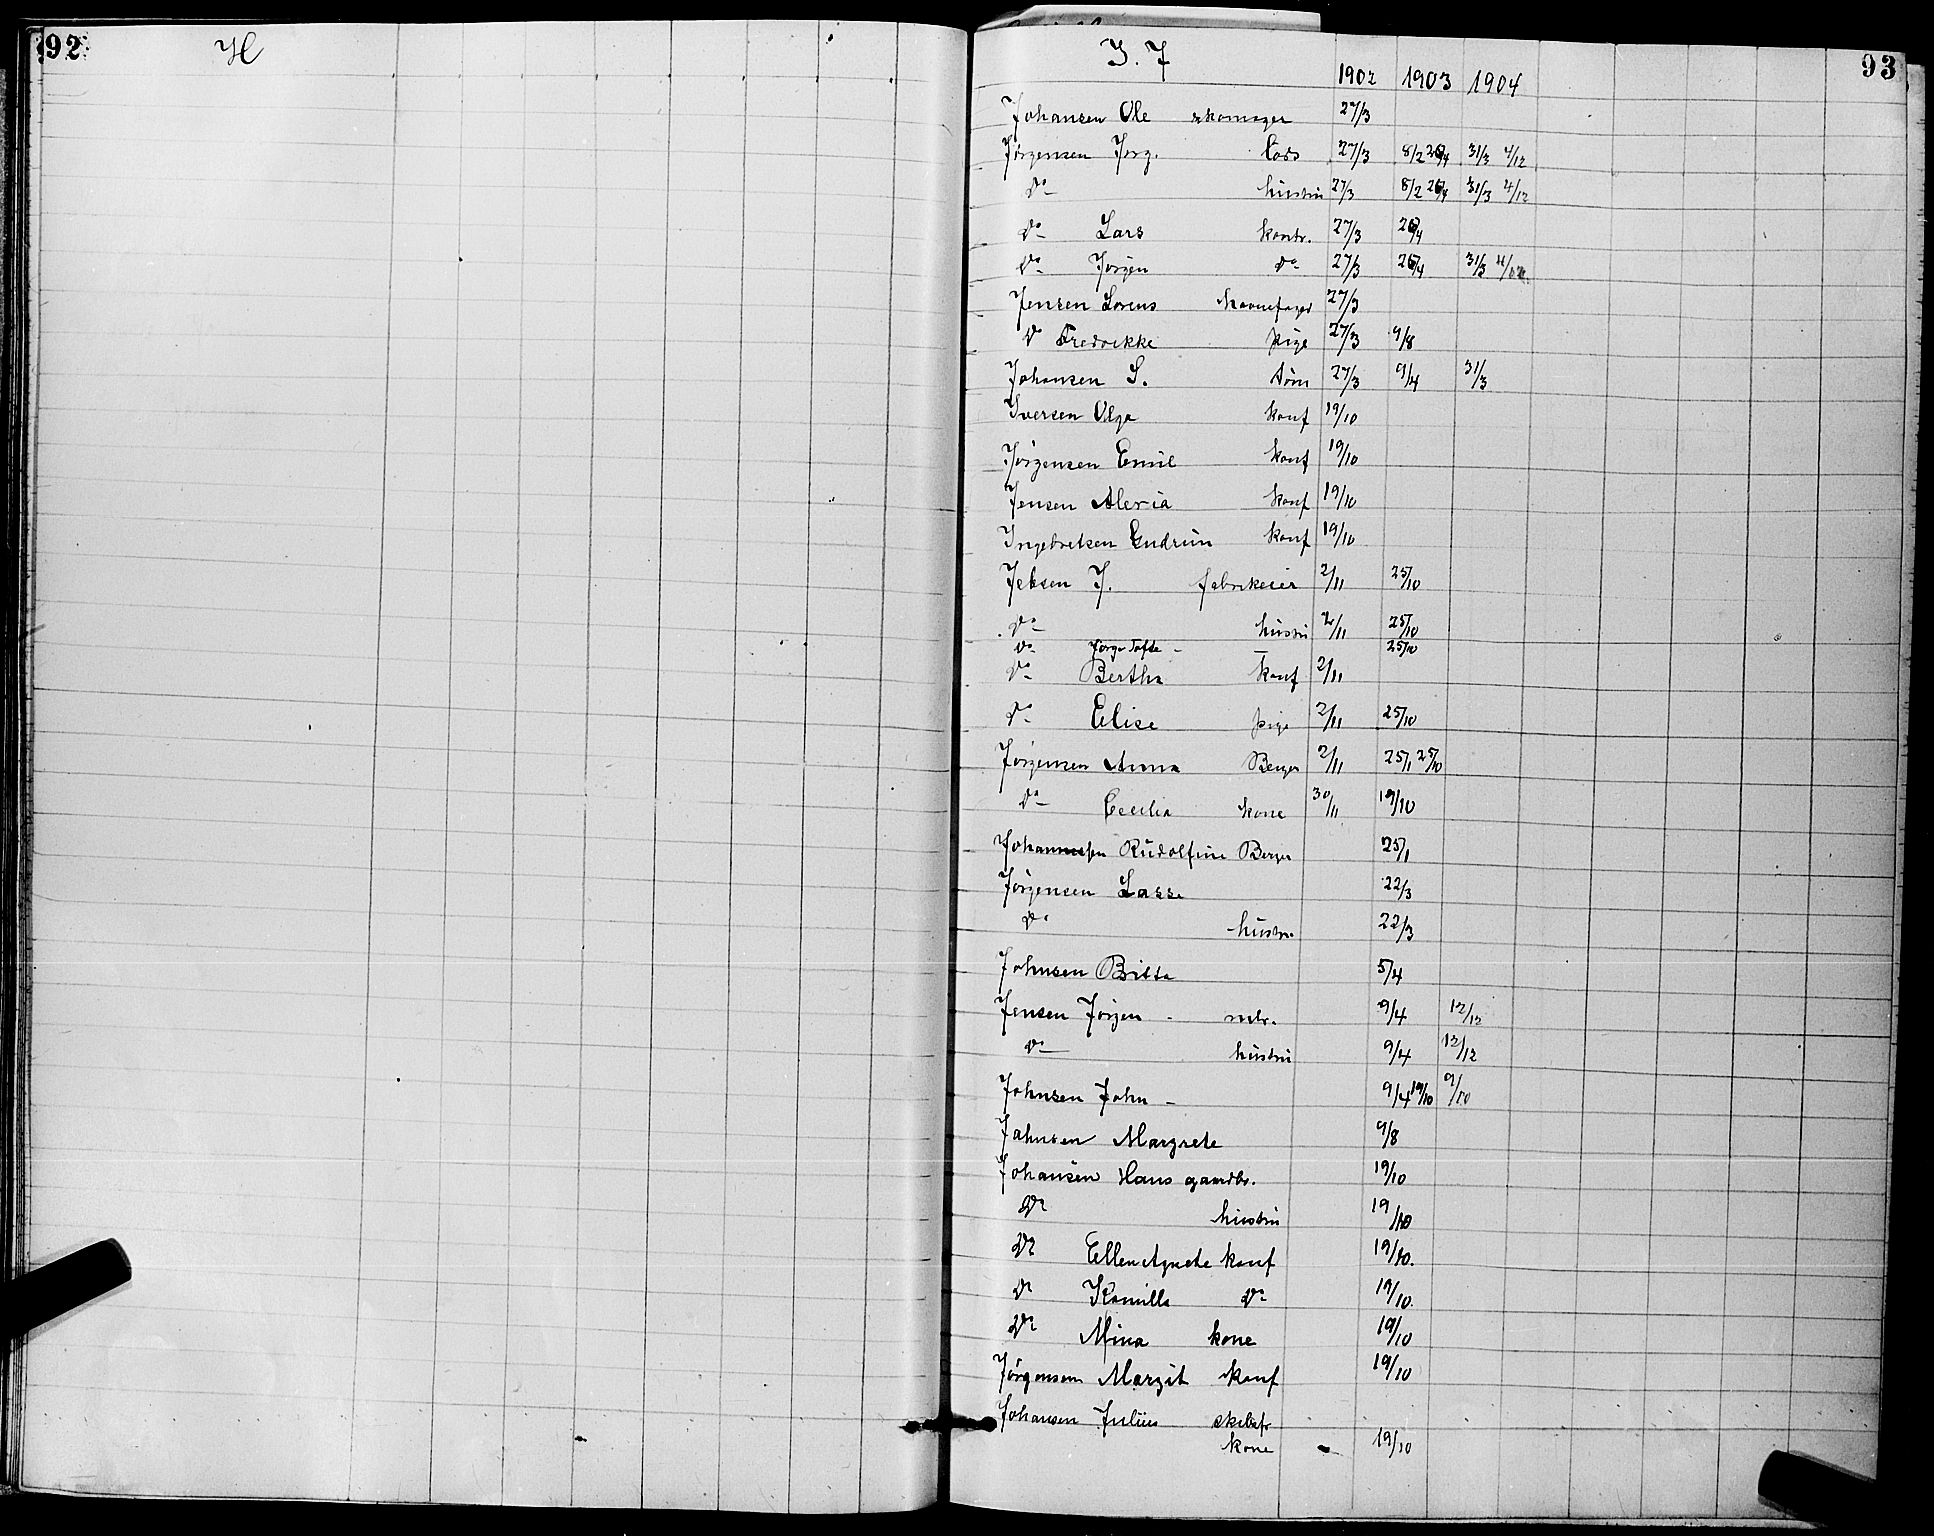 92
H
I. J
93
1902 1903 1904
Johansen Ole skomager 27/3
Jørgensen Jørg. Lods 27/3 8/2 26/4 31/3 4/12
Do hustru 27/3 8/2 26/4 31/3 4/12
Do Lars kontr. 27/3 26/4
Do Jørgen Do 27/3 26/4 31/3 4/12
Jensen Lorens havnefoged 27/3
Do Fredrikke pige 27/3 9/8
Johansen S. 27/3 9/4 31/3
Iversen Olga konf 19/10
Jørgensen Emil konf 19/10
Jensen Aleria konf 19/10
Ingebretsen Gudrun konf 19/10
Jebsen J. fabrikeier 2/11 25/10
Do hustru 2/11 25/10
Do 25/10
Do Bertha konf 2/11
Do Elise pige 2/11 25/10
Jørgensen Anna Bergen 2/11 25/1 25/10
Do Cecilia kone 30/11 19/10
Johannesen Rudolfine Bergen 25/1
Jørgensen Lasse 22/3
Do hustru 22/3
Johnsen Britta 5/4
Jensen Jørgen 9/4 12/12
Do hustru 9/4 12/12
Johnsen John 9/4 19/10 9/10
Johnsen Margrete 9/8
Johansen Hans gaardbr. 19/10
Do hustru 19/10
Do Ellen Agnete konf 19/10.
Do Kamilla Do 19/10.
Do Mina kone 19/10
Jørgensen Margit konf 19/10
Johansen Julius skibsfr
kone 19/10